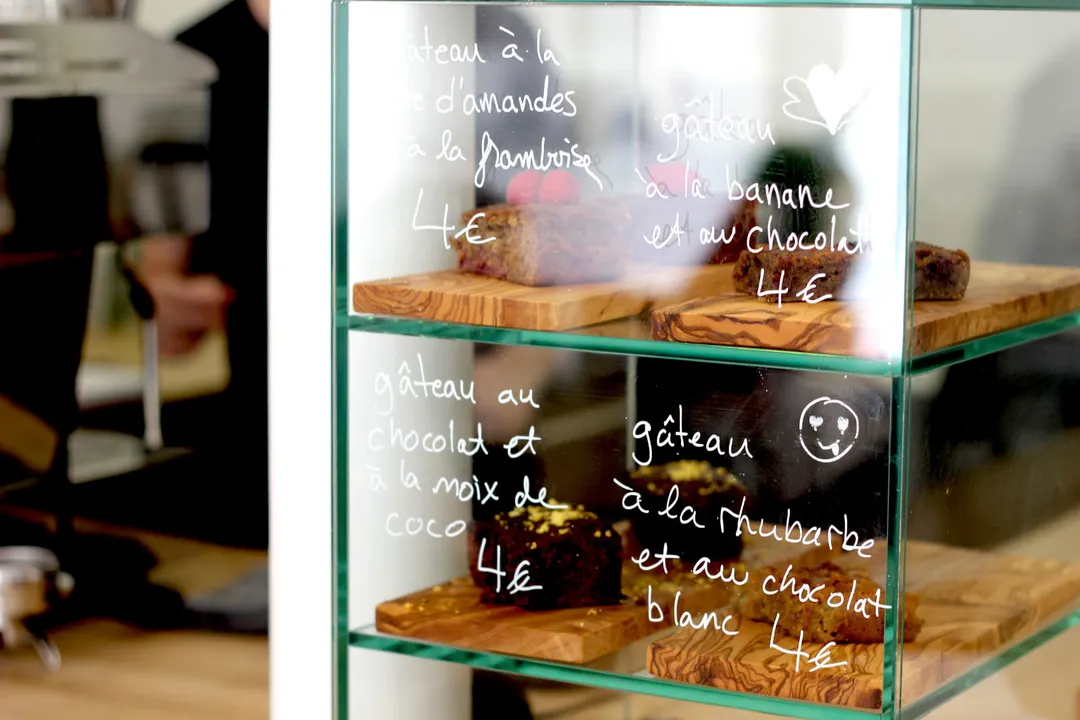 gâteau à la
d'amandes
à la framboise
4€
gâteau
à la banane
et au chocolat
4€
gâteau au
chocolat et
à la noix de
coco
4€
gâteau
à la rhubarbe
et au chocolat
blanc 4€